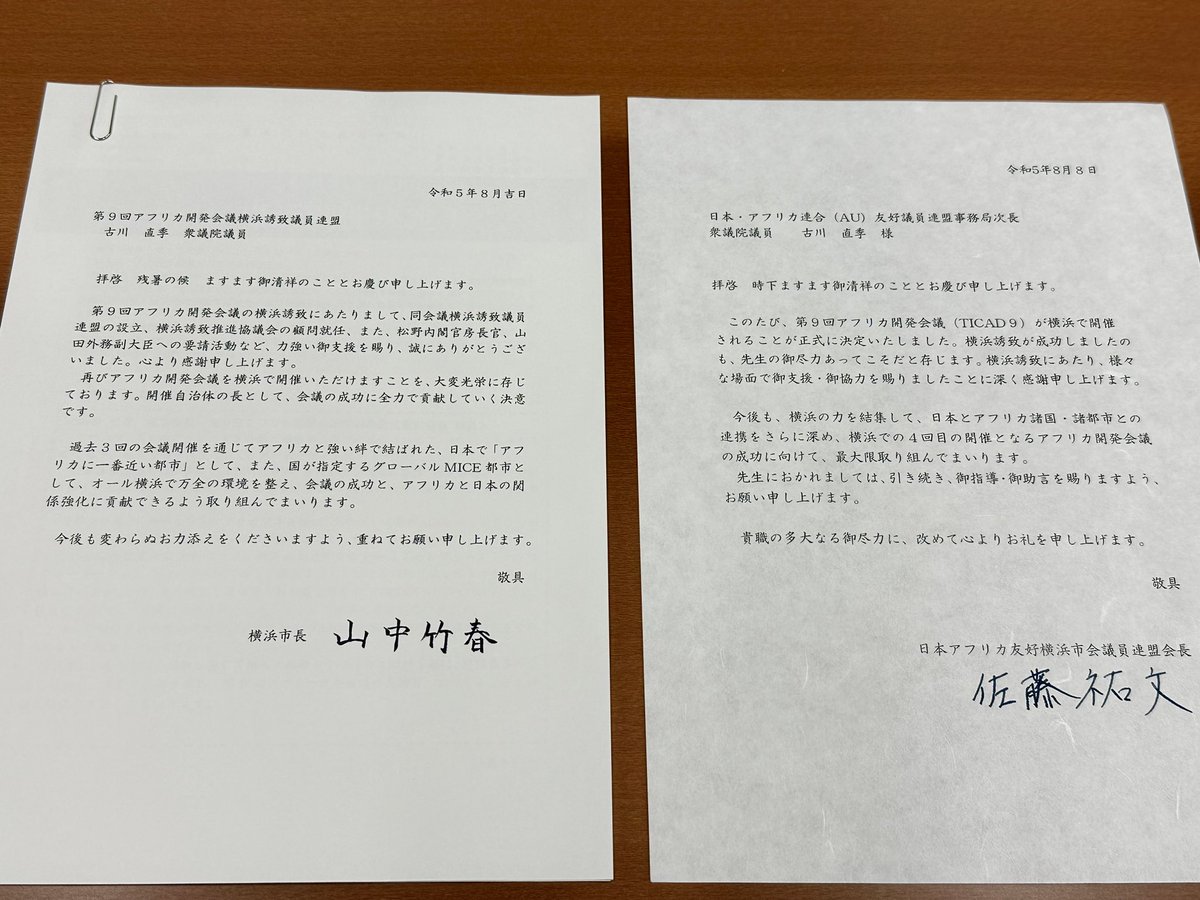 令和５年８月吉日
第９回アフリカ開発会議横浜誘致議員連盟
古川　直季　衆議院議員
拝啓　残暑の候　ますます御清祥のこととお慶び申し上げます。
第９回アフリカ開発会議の横浜誘致にあたりまして、同会議横浜誘致議員
連盟の設立、横浜誘致推進協議会の顧問就任、また、松野内閣官房長官、山
田外務副大臣への要請活動など、力強い御支援を賜り、誠にありがとうござ
いました。心より感謝申し上げます。
再びアフリカ開発会議を横浜で開催いただけますことを、大変光栄に存じ
ております。開催自治体の長として、会議の成功に全力で貢献していく決意
です。
過去３回の会議開催を通じてアフリカと強い絆で結ばれた、日本で「アフ
リカに一番近い都市」として、また、国が指定するグローバルMICE都市と
して、オール横浜で万全の環境を整え、会議の成功と、アフリカと日本の関
係強化に貢献できるよう取り組んでまいります。
今後も変わらぬお力添えをくださいますよう、重ねてお願い申し上げます。
敬具
横浜市長　山中竹春
令和5年8月８日
日本・アフリカ連合（AU）友好議員連盟事務局次長
衆議院議員　古川　直季　様
拝啓　時下ますます御清祥のこととお慶び申し上げます。
このたび、第９回アフリカ開発会議（TICAD９）が横浜で開催
されることが正式に決定いたしました。横浜誘致が成功しましたの
も、先生の御尽力あってこそだと存じます。横浜誘致にあたり、様々
な場面で御支援・御協力を賜りましたことに深く感謝申し上げます。
今後も、横浜の力を結集して、日本とアフリカ諸国・諸都市との
連携をさらに深め、横浜での４回目の開催となるアフリカ開発会議
の成功に向けて、最大限取り組んでまいります。
先生におかれましては、引き続き、御指導・御助言を賜りますよう、
お願い申し上げます。
貴職の多大なる御尽力に、改めて心よりお礼を申し上げます。
敬具
日本アフリカ友好横浜市会議員連盟会長
佐藤祐文